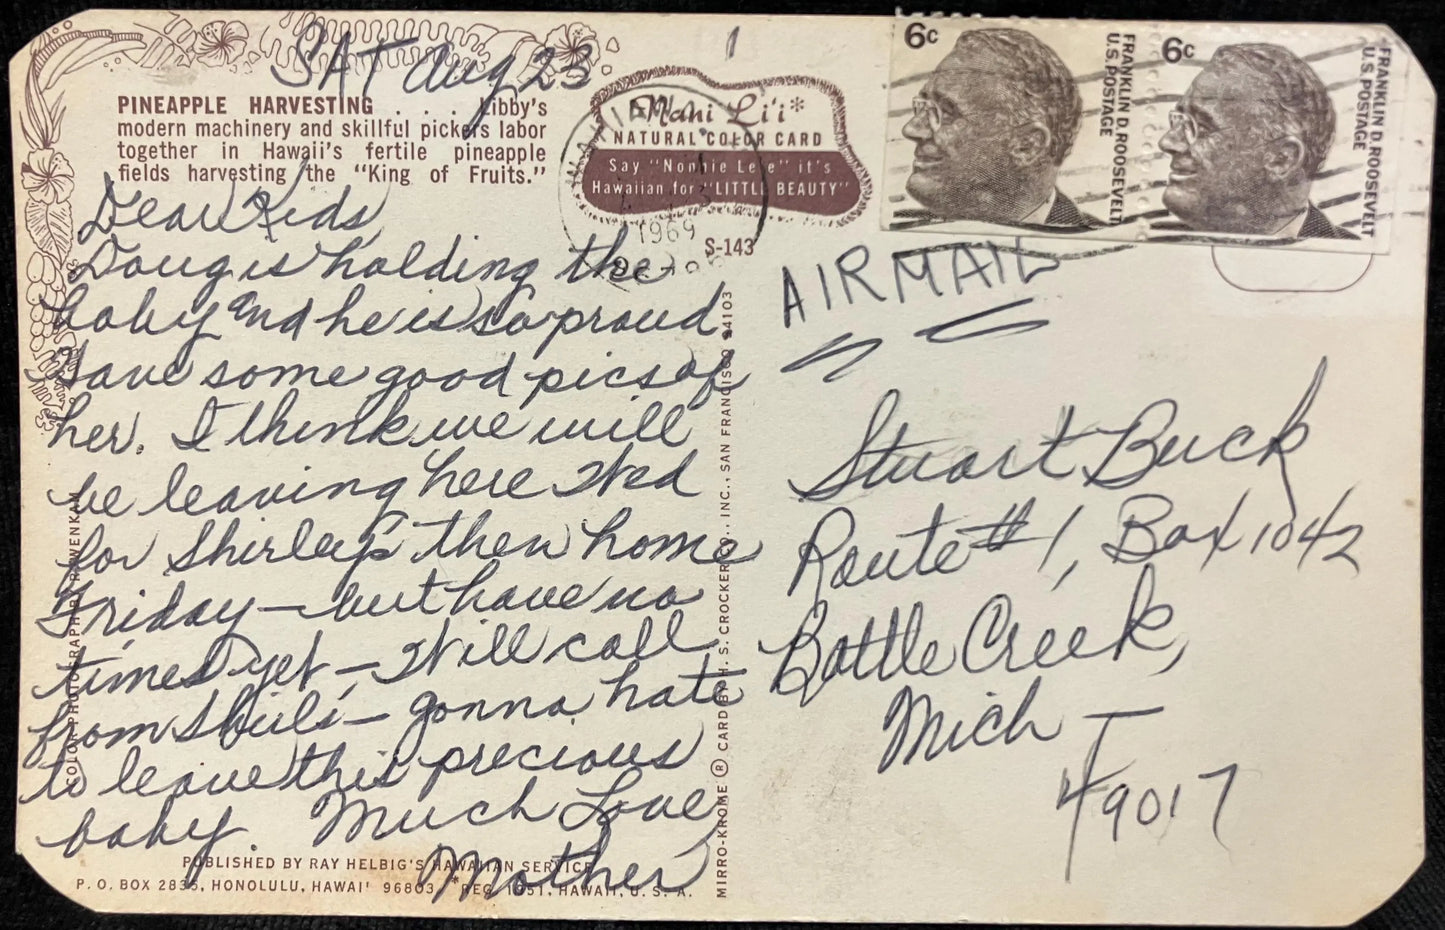 SAT Aug 23
PINEAPPLE HARVESTING . . . . Libby's
modern machinery and skillful pickers labor
together in Hawaii's fertile pineapple
fields harvesting the "King of Fruits."
Mani Li'i*
NATURAL COLOR CARD
Say "Nonnie Lee" it's
Hawaiian for "LITTLE BEAUTY"
S-143
1969
6c
FRANKLIN D. ROOSEVELT
U.S. POSTAGE
6c
FRANKLIN D. ROOSEVELT
U.S. POSTAGE
Dear Kids,
Doug is holding the
baby and he is so proud
Have some good pics of
her. I think we will
be leaving here Wed
for Shirley's then home
Friday – but have no
times yet – Will call
from Shirls – gonna hate
to leave this precious
baby. Much Love,
Mother
AIRMAIL
Stuart Buck
Route #1, Box 1042
Battle Creek,
Mich –
49017
COLOR PHOTOGRAPH R. WENKAM
MIRRO-KROME ® CARD BY H. S. CROCKER CO., INC., SAN FRANCISCO 94103
PUBLISHED BY RAY HELBIG'S HAWAIIAN SERVICE
P. O. BOX 2835, HONOLULU, HAWAI' 96803 *REG. 1951, HAWAII, U. S. A.